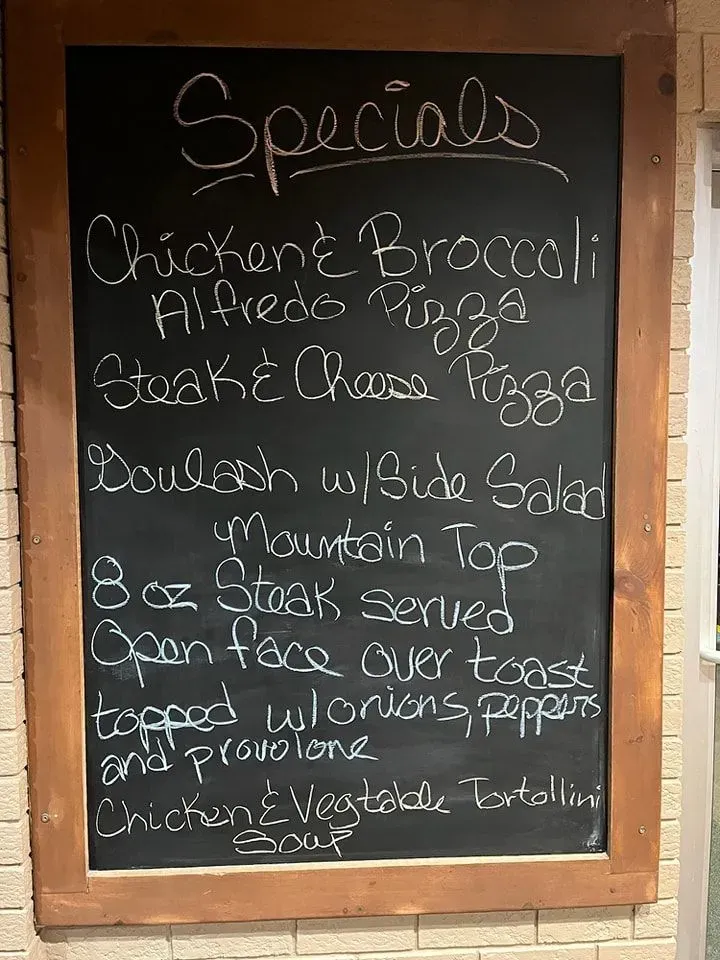 Specials
Chicken & Broccoli
Alfredo Pizza
Steak & Cheese Pizza
Goulash w/Side Salad
Mountain Top
8 oz Steak served
Open face over toast
topped w/onions, peppers
and provolone
Chicken & Vegtable Tortollini
Soup